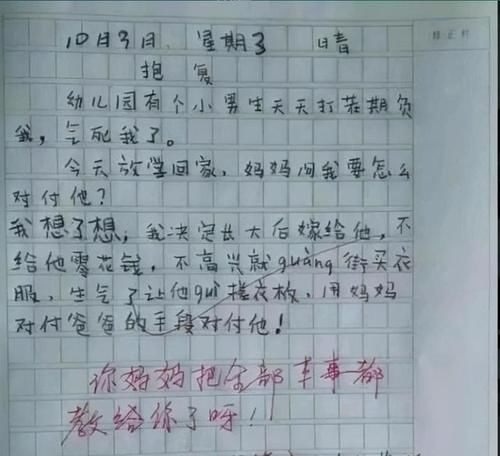 10月3日 星期3 晴
抱复
幼儿园有个小男生天天打茬期负
我，气死我了。
今天放学回家，妈妈问我要怎么
对付他？
我想了想，我决定长大后嫁给他，不
给他零花钱，不高兴就guàng街买衣
服，生气了让他guì搓衣板，用妈妈
对付爸爸的手段对付他！
你妈妈把全部本事都
教给你了呀！